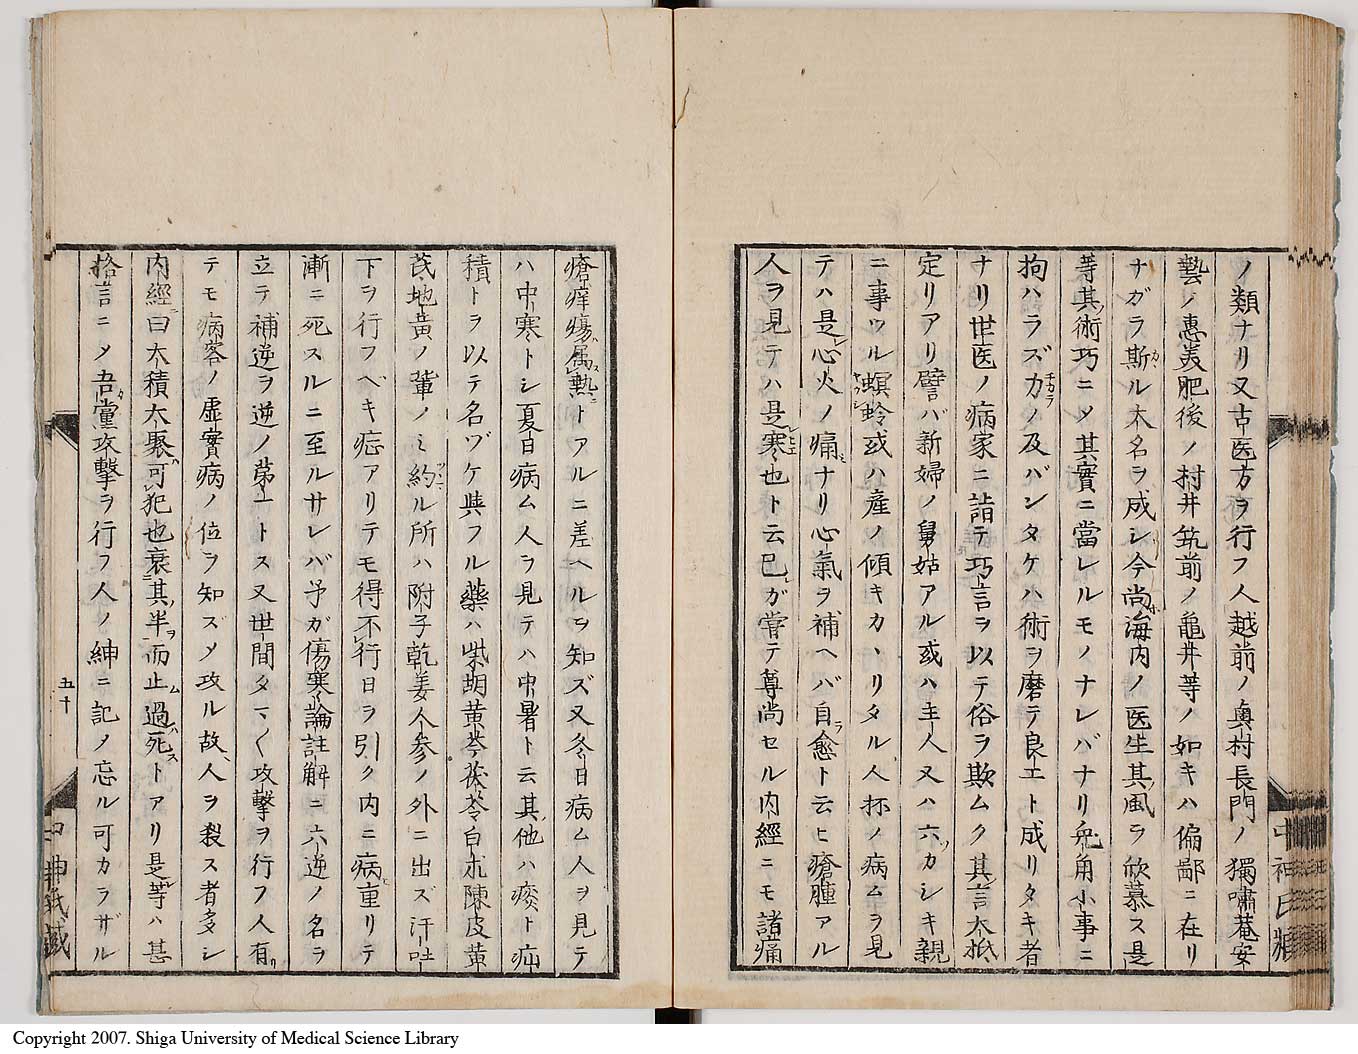 ノ類ナリ又古医方ヲ行フ人越前ノ奥村長門ノ獨嘯菴安
藝ノ惠美肥後ノ村井筑前ノ亀井等ノ如キハ偏鄙ニ在リ
ナガラ斯ル大名ヲ成シ今尚海内ノ医生其風ヲ欣慕ス是
等其術巧ニメ其實ニ當レルモノナレバナリ兎角小事ニ
拘ハラズ力ノ及バンタケハ術ヲ磨テ良工ト成リタキ者
ナリ世医ノ病家ニ詣テ巧言ヲ以テ俗ヲ欺ムク其言大抵
定リアリ譬バ新婦ノ舅姑アル或ハ主人又ハ六カシキ親
ニ事ツル螟蛉或ハ産ノ傾キカヽリタル人抔ノ病ムヲ見
テハ是心火ノ痛ナリ心氣ヲ補ヘバ自愈ト云ヒ瘡腫アル
人ヲ見テハ是寒也ト云己ガ嘗テ尊尚セル内經ニモ諸痛
中神氏藏
瘡痒瘍属熱トアルニ差ヘルヲ知ズ又冬日病ム人ヲ見テ
ハ中寒トシ夏日病ム人ヲ見テハ中暑ト云其他ハ痰ト疝
積トヲ以テ名ヅケ與フル藥ハ柴胡黄芩茯苓白朮陳皮黄
芪地黄ノ輩ノミ約ル所ハ附子乾姜人参ノ外ニ出ズ汗吐
下ヲ行フベキ症アリテモ得不行日ヲ引ク内ニ病重リテ
漸ニ死スルニ至ルサレバ予ガ傷寒論註解ニ六逆ノ名ヲ
立テ補逆ヲ逆ノ第一トス又世間タマ〱攻撃ヲ行フ人有
テモ病客ノ虚實病ノ位ヲ知ズメ攻ル故人ヲ殺ス者多シ
内經曰大積大聚可犯也衰其半而止過死トアリ是等ハ甚
格言ニメ吾黨攻撃ヲ行フ人ノ紳ニ記ノ忘ル可カラザル
五十
Copyright 2007. Shiga University of Medical Science Library